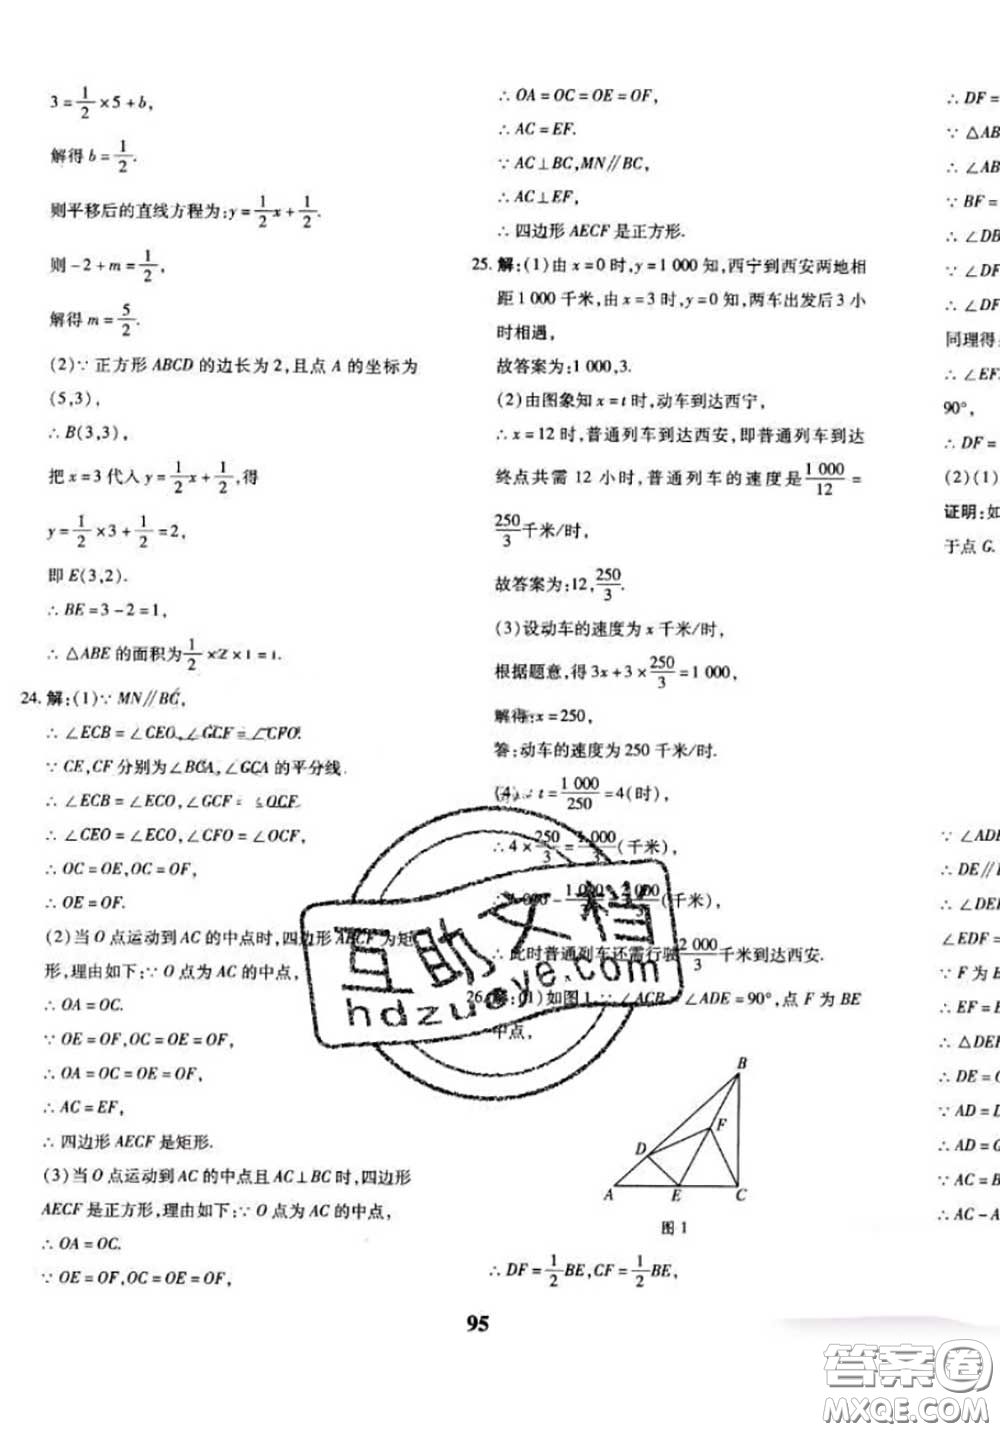 3=1/2×5+b,
解得 b=1/2.
则平移后的直线方程为:y=1/2x+1/2.
则-2+m=1/2,
解得 m=5/2.
(2)∵正方形 ABCD 的边长为 2,且点 A 的坐标为
(5,3),
∴B(3,3),
把 x=3 代入 y=1/2x+1/2,得
y=1/2×3+1/2=2,
即 E(3,2).
∴BE=3-2=1,
∴△ABE 的面积为1/2×2×1=1.
24.解:(1)∵MN∥BC,
∴∠ECB=∠CEO,∠GCF=∠CFO.
∵CE,CF 分别为∠BCA,∠GCA 的平分线.
∴∠ECB=∠ECO,∠GCF=∠OCF.
∴∠CEO=∠ECO,∠CFO=∠OCF,
∴OC=OE,OC=OF,
∴OE=OF.
(2)当 O 点运动到 AC 的中点时,四边形 AECF 为矩
形,理由如下:∵O 点为 AC 的中点,
∴OA=OC.
∵OE=OF,OC=OE=OF,
∴OA=OC=OE=OF,
∴AC=EF,
∴四边形 AECF 是矩形.
(3)当 O 点运动到 AC 的中点且 AC⊥BC 时,四边形
AECF 是正方形,理由如下:∵O 点为 AC 的中点,
∴OA=OC.
∵OE=OF,OC=OE=OF,
∴OA=OC=OE=OF,
∴AC=EF.
∵AC⊥BC,MN∥BC,
∴AC⊥EF,
∴四边形 AECF 是正方形.
25.解:(1)由 x=0 时,y=1 000 知,西宁到西安两地相
距 1 000 千米,由 x=3 时,y=0 知,两车出发后 3 小
时相遇,
故答案为:1 000,3.
(2)由图象知 x=t 时,动车到达西宁,
∴x=12 时,普通列车到达西安,即普通列车到达
终点共需 12 小时,普通列车的速度是1 000/12=
250/3千米/时,
故答案为:12,250/3.
(3)设动车的速度为 x 千米/时,
根据题意,得 3x+3×250/3=1 000,
解得:x=250,
答:动车的速度为 250 千米/时.
(4)∵t=1 000/250=4(时),
∴4×250/3=1 000/3(千米),
∴1 000-1 000/3=2 000/3(千米),
∴此时普通列车还需行驶2 000/3千米到达西安.
26.解:(1)如图 1,∵∠ACB=∠ADE=90°,点 F 为 BE
中点,
B
F
D
A E C
图 1
∴DF=1/2BE,CF=1/2BE,
∴DF=
∵△AB
∴∠AB
∵BF=
∴∠DB
∵∠DF
∴∠DF
同理得
∴∠EF
90°,
∴DF=
(2)(1)
证明:如
于点 G.
∵∠ADE
∴DE∥
∴∠DE
∠EDF=
∵F 为 E
∴EF=
∴△DE
∴DE=
∵AD=
∴AD=
∵AC=B
∴AC-A
95
互助文档
hdzuoye.com
答案卷
MXQE.COM